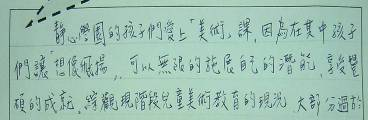 靜心學園的孩子們愛上「美術」課,因為在其中孩子
們讓「想像飛揚」,可以無限的施展自己的潛能,享受豐
碩的成就,綜觀現階段兒童美術教育的現況,大部分過於